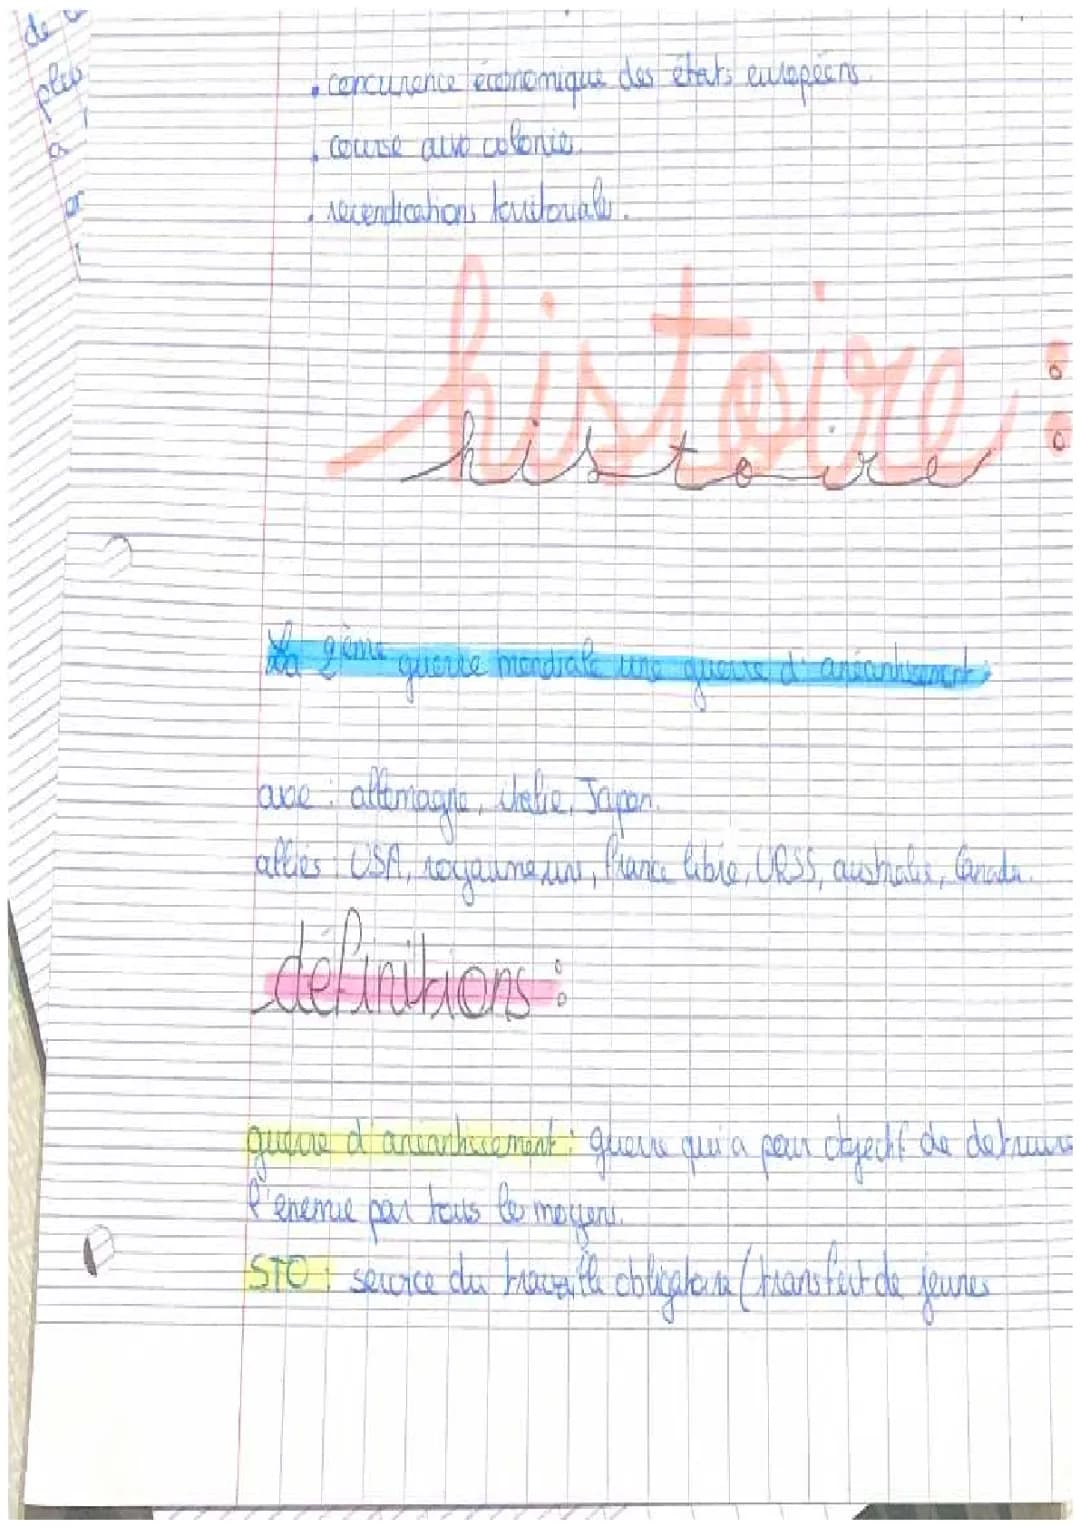 de
plus
à
or
. concurence économique des états européens.
. course aux colonie.
. revendications territoriale.
histoire :
histoire
La 2ème guerre mondiale une guerre d'anéantissement
axe : allemagne, italie, Japon.
alliés : USA, royaume uni, france libre, URSS, australie, Canada.
définitions :
guerre d'anéantissement : guerre qui a pour objectif de detruire
l'enemie par tous les moyens.
STO : service du travaille obligatoire (transfert de jeunes